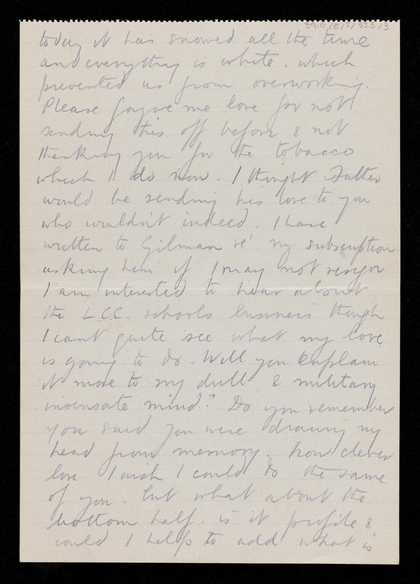 today it has snowed all the time
and everything is white. which
prevented us from overworking.
Please forgive me love for not
sending this off before & not
thanking you for the tobacco
which I do now. I thought Satter
would be sending his love to you
who wouldn't indeed. I have
written to Gilman re' my subscription
asking him if I may not resign
I am interested to hear about
the LCC. schools business though
I cant quite see what my love
is going to do. Will you explain
it more to my dull & military
insensate mind? Do you remember
you said you were drawing my
head from memory. how clever
love I wish I could do the same
of you. but what about the
bottom half. is it profile &
could I help to add what is